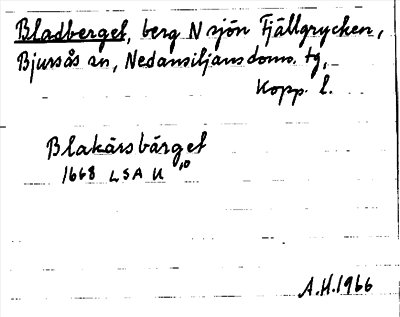 Bladberget, berg N sjön Fjällgrycken,
Bjursås sn, Nedansiljans doms. tg,
Kopp. l.
Blakärsbärget
1668 LSA U 10
A.H. 1966